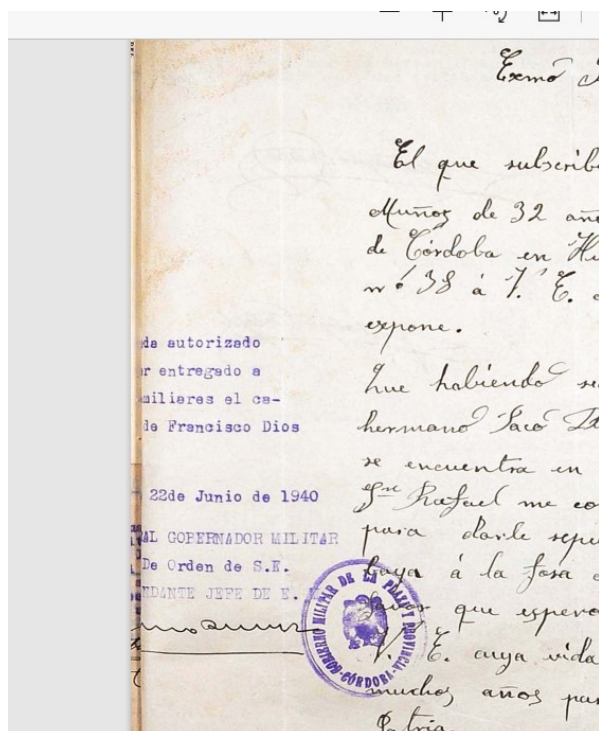 Exmó
El que subscrib
Muñoz de 32 añ
de Córdoba en Hu
nº 38 á V. E.
expone.
Que habiendo se
hermano Paco
se encuentra en
Sn Rafael me co
para darle sepu
haya á la fosa
favor que espero
V. E. cuya vida
muchos años par
Patria.
da autorizado
r entregado a
miliares el ca-
de Francisco Dios
22de Junio de 1940
AL GOBERNADOR MILITAR
De Orden de S.E.
NDANTE JEFE DE E.
GOBIERNO MILITAR DE LA PLAZA Y PROVINCIA
-CÓRDOBA-